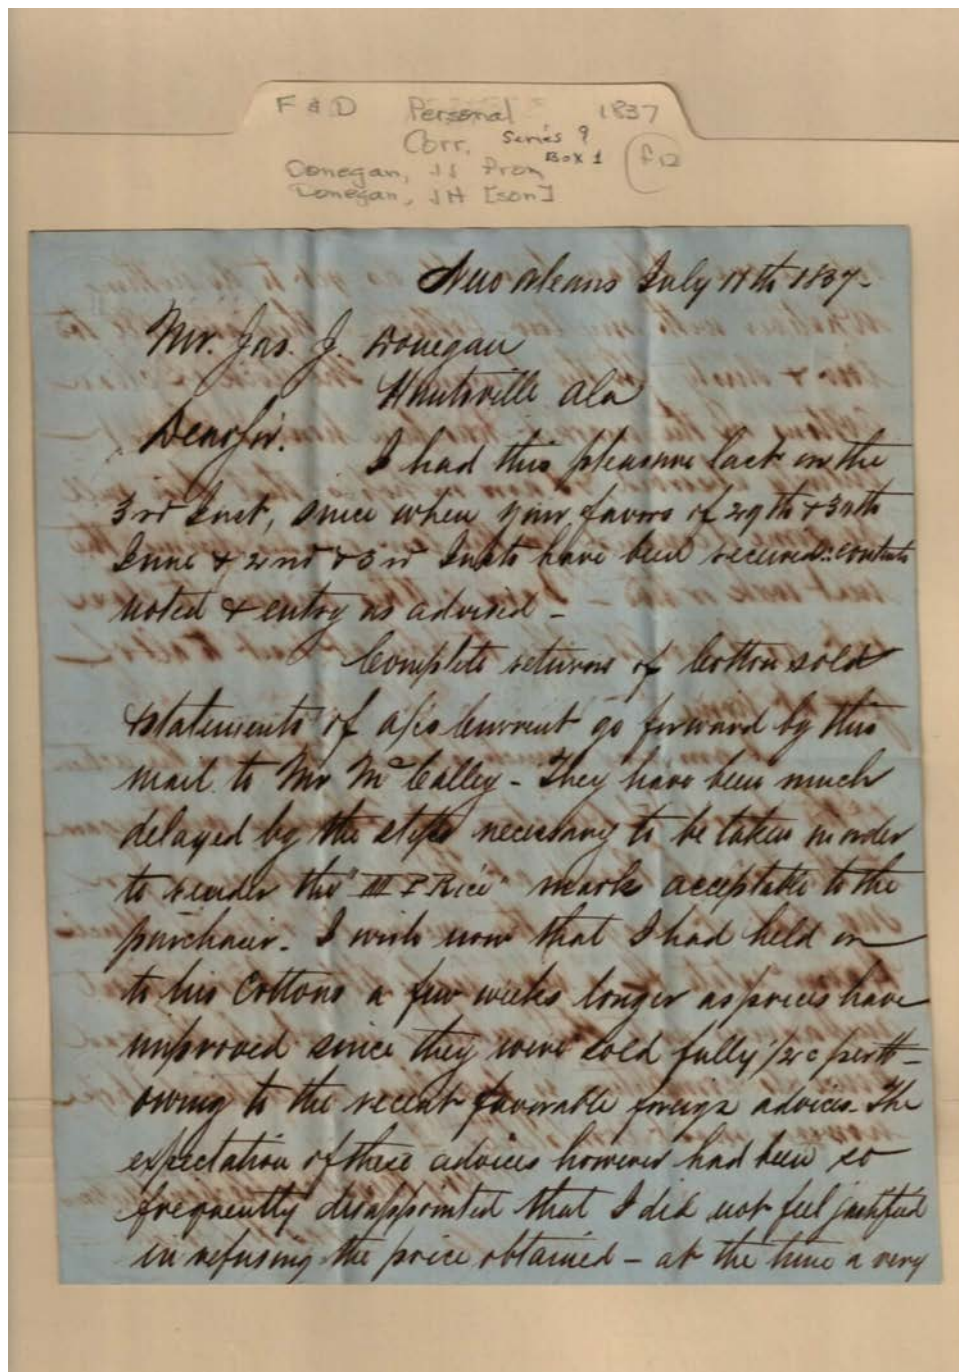 F & D Personal 1837
Corr. Series 9
Box 1 f12
Donegan, JJ from
Donegan, JH [son]
New Orleans July 11th 1837-
Mr. Jas. J. Donegan
Huntsville Ala
Dear Sir.
I had this pleasure last on the
3rd Inst, since when your favors of 29th & 30th
June & 2nd & 3rd Insts have been received: contents
noted & entry as advised -
Complete returns of Cotton sold
& statements of a/cs Current go forward by this
mail to Mr McCalley - They have been much
delayed by the steps necessary to be taken in order
to render the "Rice" mark acceptable to the
purchaser. I wish now that I had held on
to his Cottons a few weeks longer as prices have
improved since they were sold fully 1/2 c per lb -
owing to the recent favorable foreign advices. The
expectation of these advices however had been so
frequently disappointed that I did not feel justified
in refusing the price obtained - at the time a very